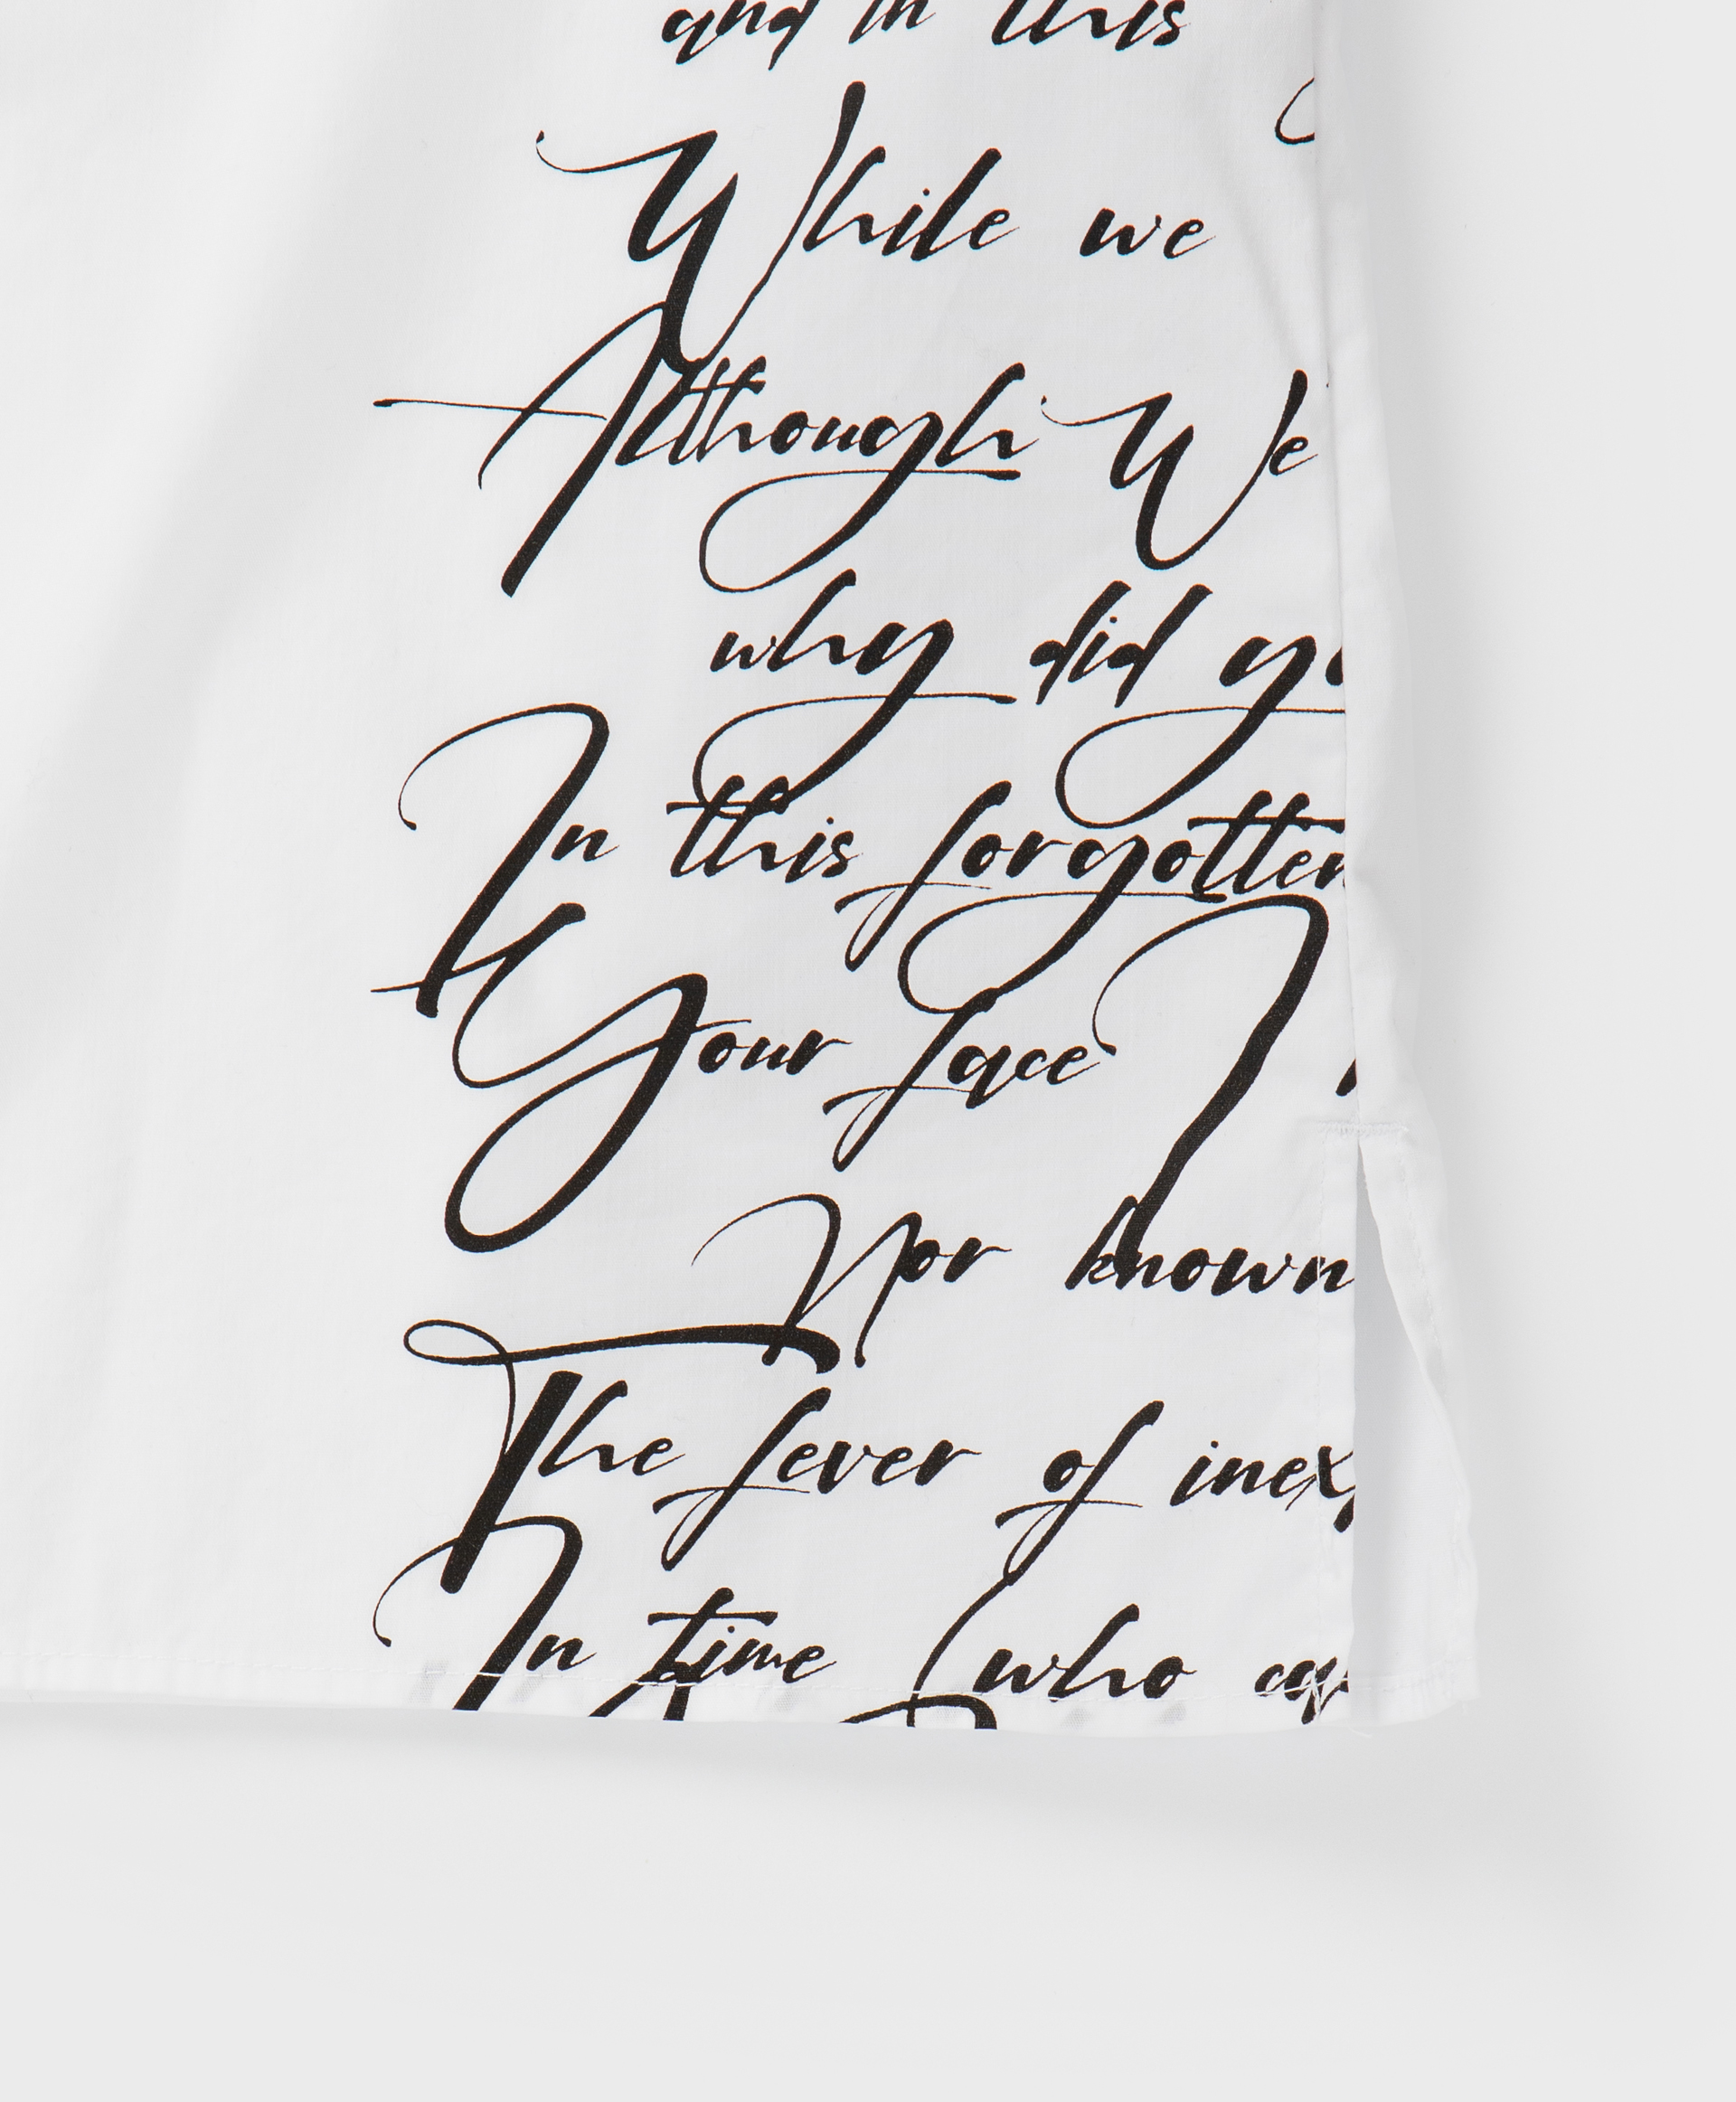 and in this
While we
Although We
why did yo
In this forgotten
Your face I
Nor known
The fever of inex
In time (who